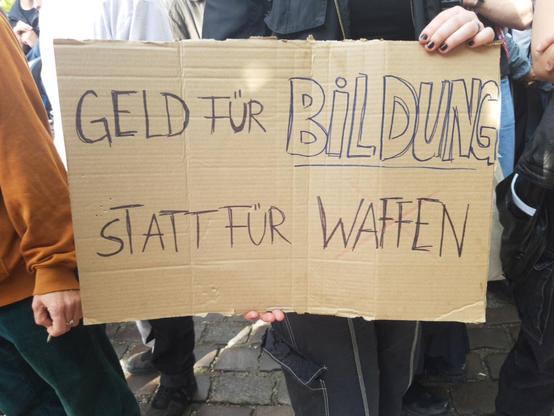 GELD FÜR BILDUNG
STATT FÜR WAFFEN